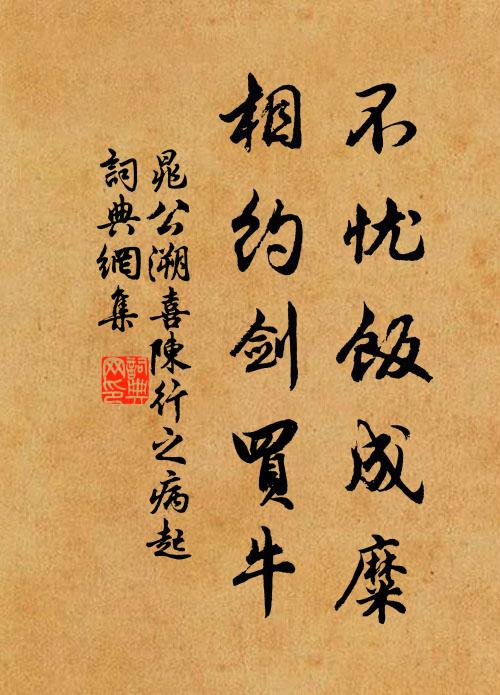 不忧饭成糜
相约剑買牛
晁公溯喜陳行之病起
詞典網集
詞典
网印